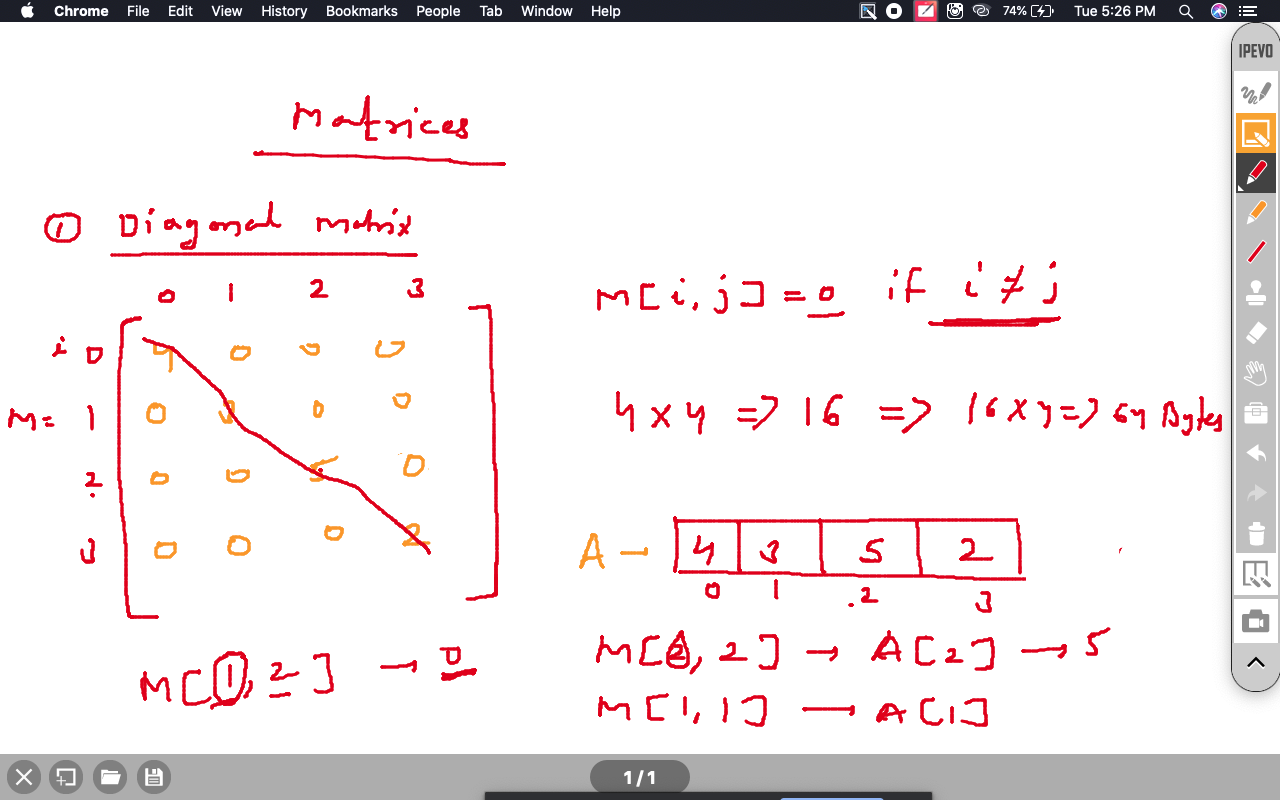 Chrome File Edit View History Bookmarks People Tab Window Help 74% Tue 5:26 PM
IPEVO
Matrices
① Diagonal matrix
0 1 2 3
i 0 4 0 0 0
M= 1 0 3 0 0
2 0 0 5 0
3 0 0 0 2
M[1, 2] → 0
M[i, j] = 0 if i ≠ j
4 x 4 => 16 => 16 x 4 => 64 Bytes
A → 4 3 5 2
0 1 2 3
M[2, 2] → A[2] → 5
M[1, 1] → A[1]
1/1